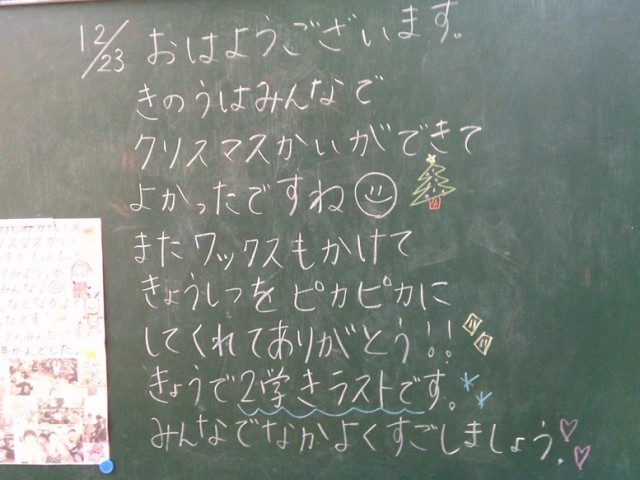 12/23 おはようございます。
きのうはみんなで
クリスマスかいができて
よかったですね
またワックスもかけて
きょうしつをピカピカに
してくれてありがとう!!
きょうで2学きラストです。
みんなでなかよくすごしましょう。